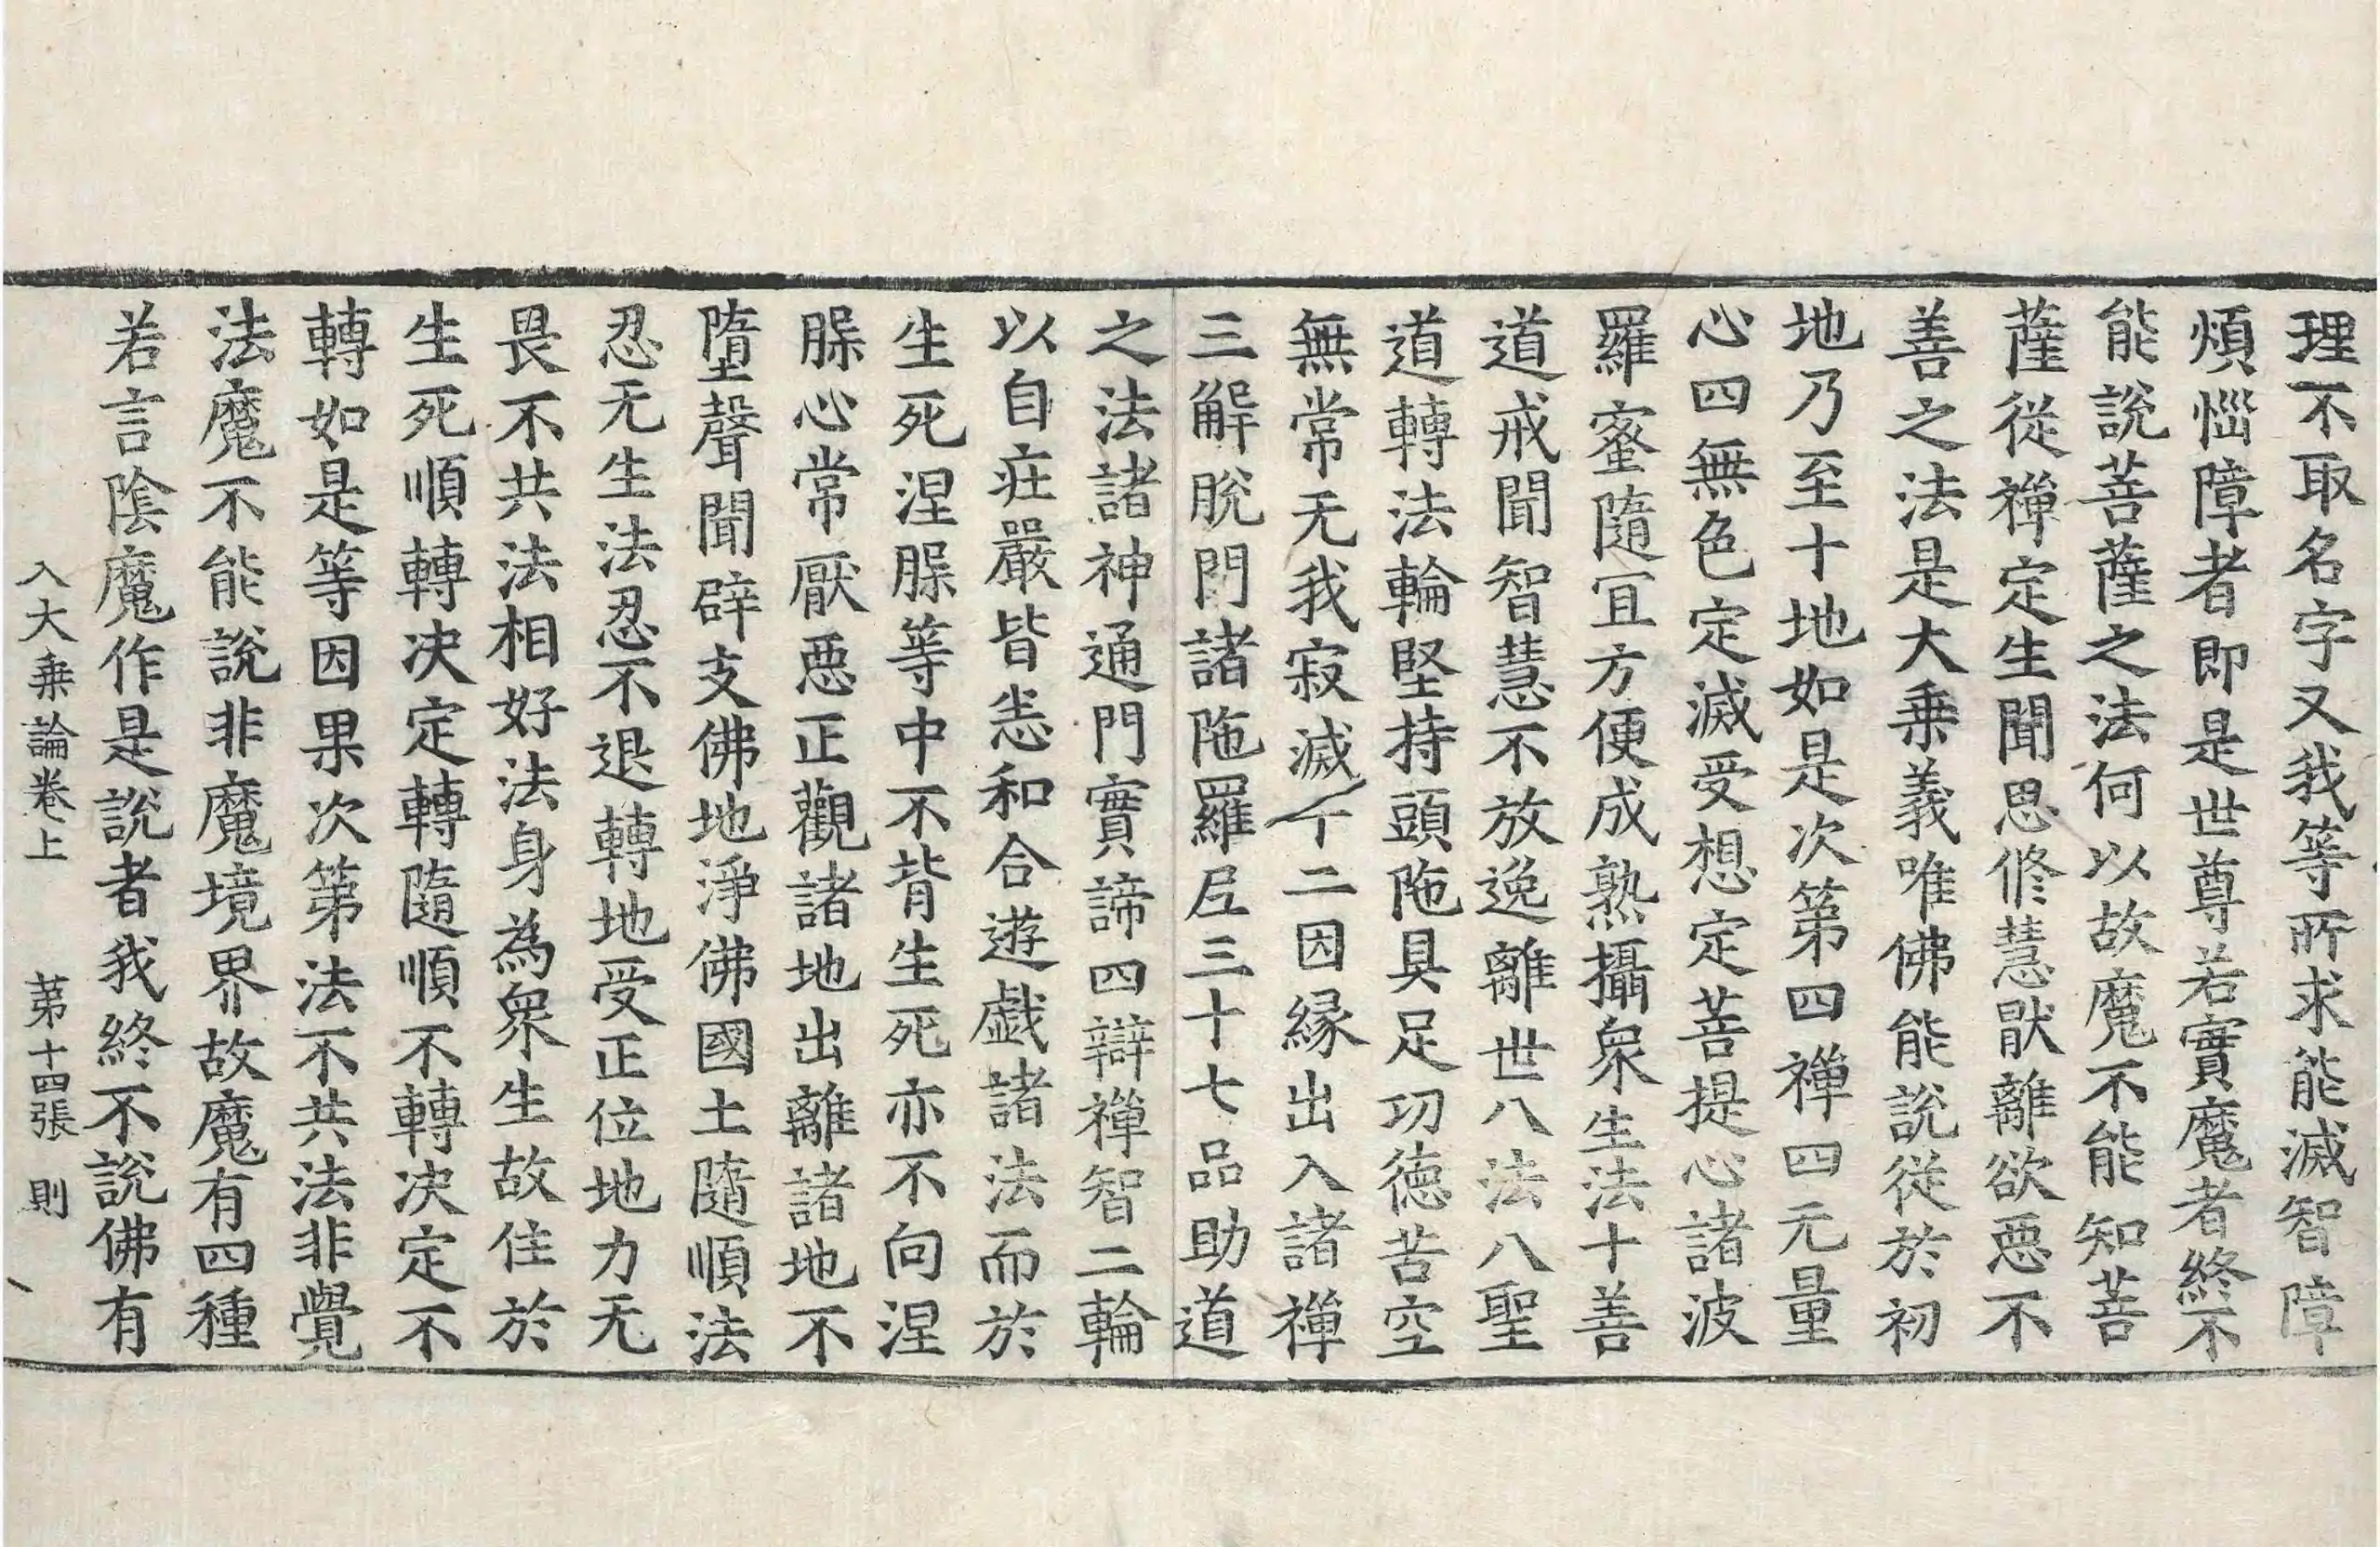 理不取名字又我等所求能滅智障
煩惱障者即是世尊若實魔者終不
能說菩薩之法何以故魔不能知菩
薩從禪定生聞思修慧猒離欲惡不
善之法是大乗義唯佛能說從於初
地乃至十地如是次第四禪四无量
心四無色定滅受想定菩提心諸波
羅蜜隨冝方便成熟攝衆生法十善
道戒聞智慧不放逸離世八法八聖
道轉法輪堅持頭陁具足功德苦空
無常无我寂滅十二因緣出入諸禪
三解脫門諸陁羅𡰱三十七品助道
之法諸神通門實諦四辯禪智二輪
以自莊嚴皆悉和合遊戱諸法而於
生死涅𦟛等中不背生死亦不向涅
𦟛心常厭惡正觀諸地出離諸地不
墮聲聞辟支佛地淨佛國土隨順法
忍无生法忍不退轉地受正位地力无
畏不共法相好法身為衆生故住於
生死順轉決定轉隨順不轉決定不
轉如是等因果次第法不共法非覺
法魔不能說非魔境界故魔有四種
若言陰魔作是說者我終不說佛有
入大乗論卷上 第十四張 則